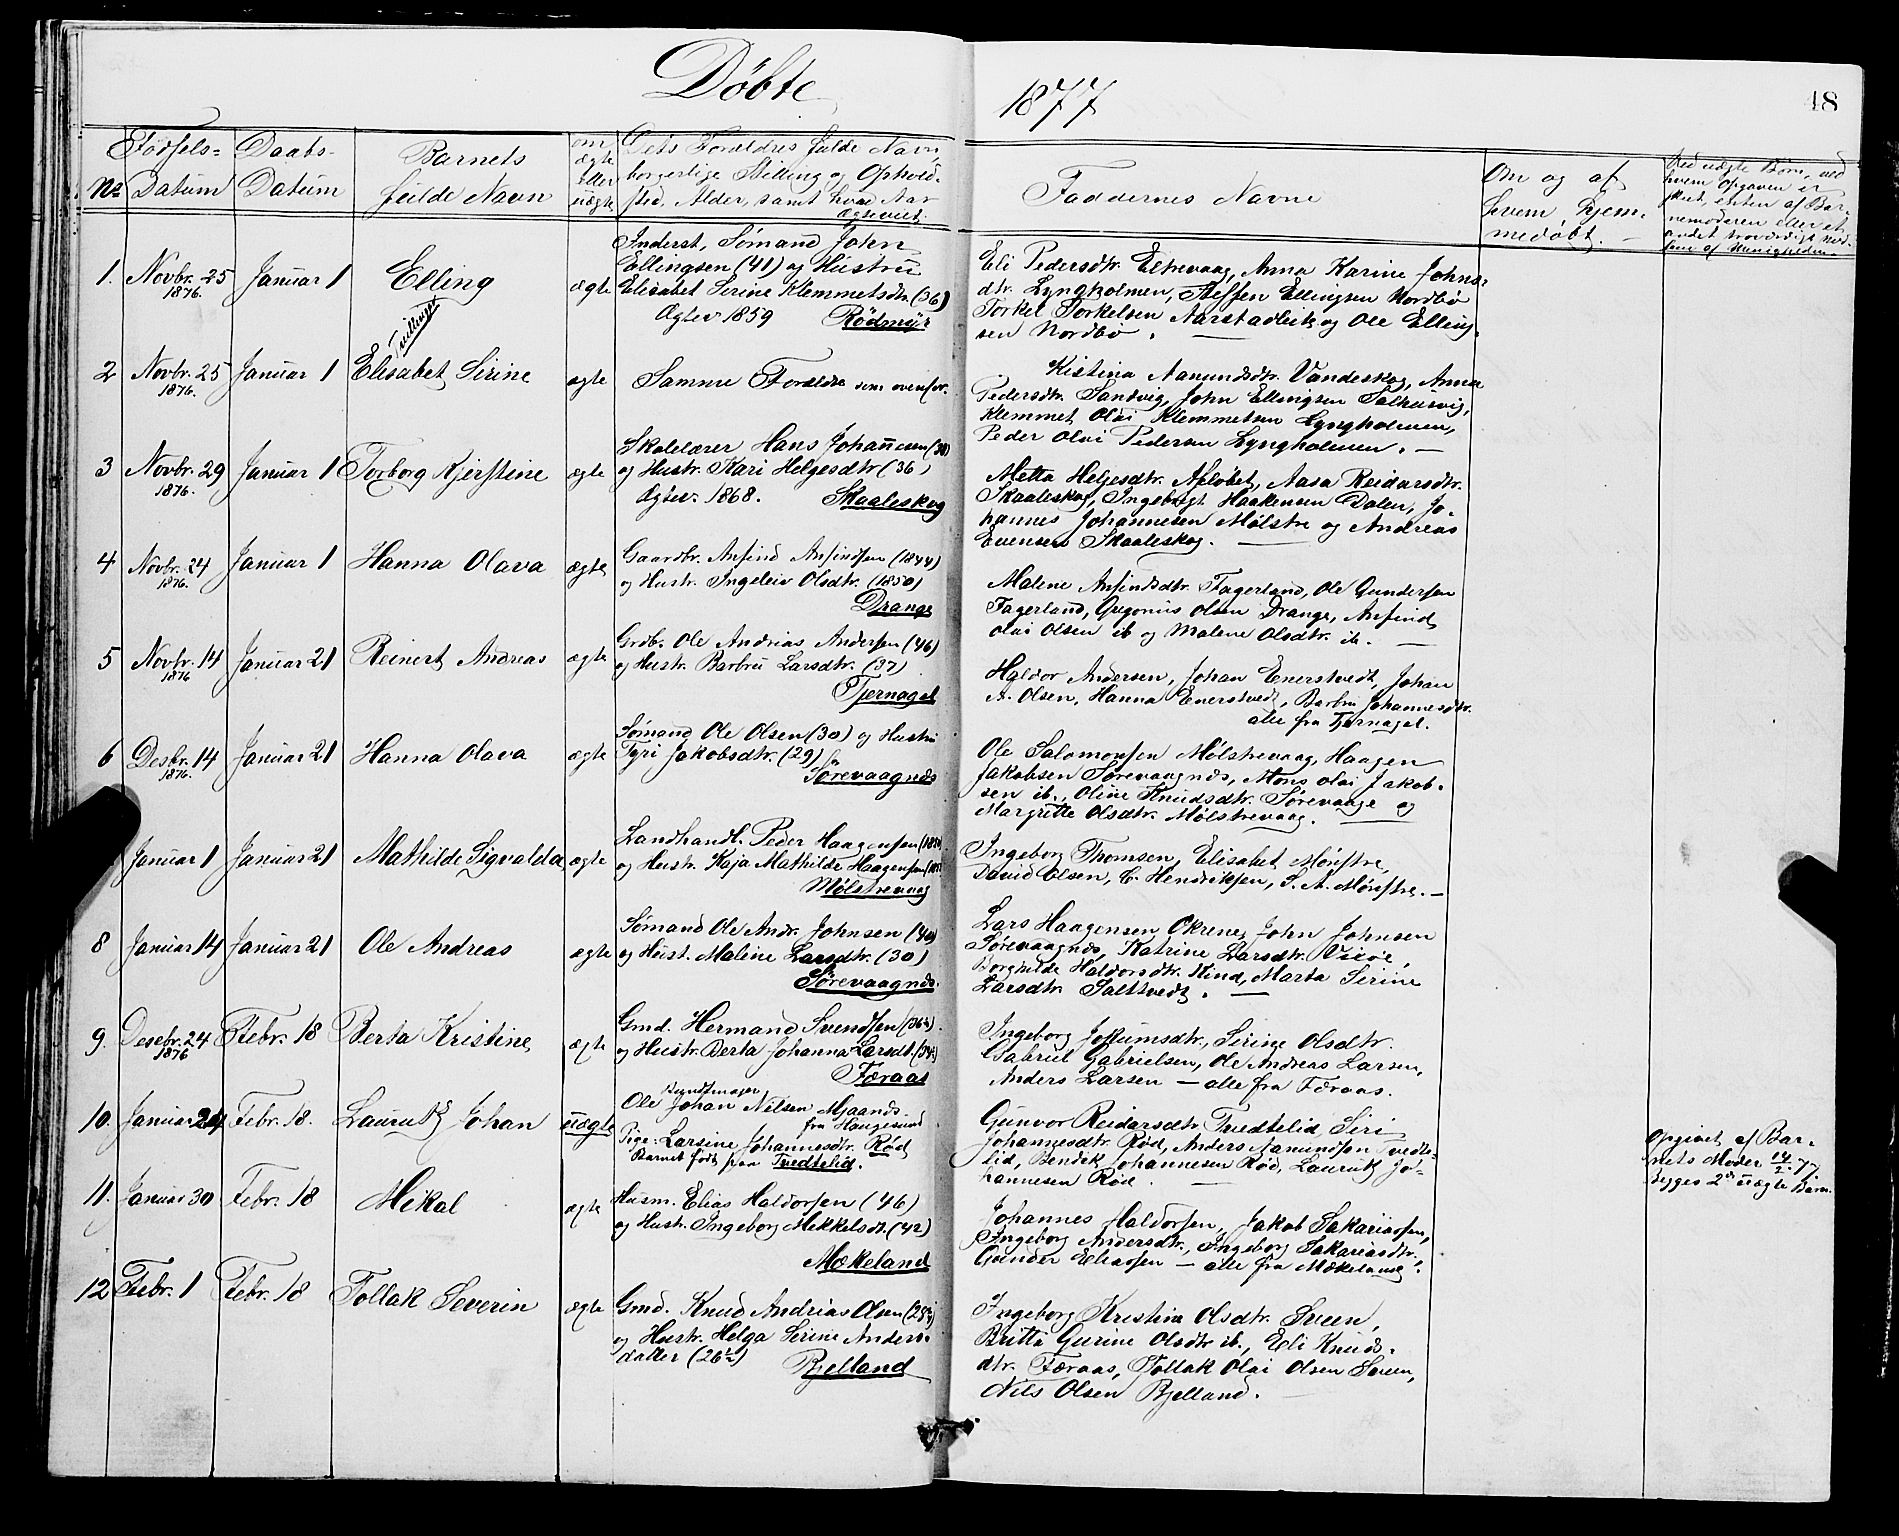 Døbte
1877
48
No
Fødsels=
Datum
Daabs-
Datum
Barnets
fulde Navn
om
ægte
eller
uægte
Dets Forældres fulde Navn,
borgerlige Stilling og Ophold-
sted, Alder, samt hvad Aar
Ægteviet.
Faddernes Navne
Om og af
hvem hjem-
medøbt.
Ved uægte Børn, ved
hvem Opgaven er
skeet, enten af Bar-
nemoderen eller et
andet troværdigt Med-
lem af Menigheden.
1. Novbr. 25 Januar 1 Elling ægte
1876.
Inderst, Sømand John
Ellingsen (41) og Hustru
Elisabet Serine Klemmetsdtr. (36)
Ægtev 1859 Rødmyr
Eli Pedersdtr. Eltrevaag, Anna Karine Johns-
dtr. Lyngholmen, Steffen Ellingsen Nordbø
Torkel Torkelsen Aarstadbuk og Ole Elling-
sen Nordbø.
Tvillinger
2 Novbr. 25 Januar 1 Elisabet Serine ægte
1876.
Samme Forældre som ovenfor.
Kistina Aamundsdtr. Vandeskog, Anna
Pedersdtr. Sandvig, John Ellingsen Salhusvig,
Klemmet Olai Klemmetsen Lyngholmen,
Peder Olai Pedersen Lyngholmen.
3 Novbr. 29 Januar 1 Torborg Kjerstine ægte
1876.
Skolelærer Hans Johannesen (38)
og Hustr. Kari Helgesdtr (36)
Ægtev. 1868. Skaaleskog
Metta Helgesdtr. Afløbet, Aasa Reidarsdtr.
Skaaleskog, Ingebrigt Haakensen Dalen, Jo-
hannes Johannesen Mølstre og Andreas
Evensen Skaaleskog.
4 Novbr. 24 Januar 1 Hanna Olava ægte
1876.
Gaardbr. Anfind Anfindsen (1844)
og Hustr. Ingeleiv Olsdtr. (1850)
Drange
Malene Anfindsdtr. Fagerland, Ole Gundersen
Fagerland, Gregorius Olsen Drange, Anfind
Olai Olsen ib og Malene Olsdtr. ib.
5 Novbr. 14 Januar 21 Reinert Andreas ægte
1876
Grdb. Ole Andrias Andersen (46)
og Hustr. Barbru Larsdtr. (37)
Tjernagel
Haldor Andersen, Johan Enerstvedt, Johan
A. Olsen, Hanna Enerstvedt, Barbru Johannesdtr.
alle fra Tjernagel.
6 Desbr. 14 Januar 21 Hanna Olava ægte
1876.
Sømand Ole Olsen (30) og Hustru
Tyri Jakobsdtr. (29)
Sørevaagnæs
Ole Salomonsen Mølstrevaag, Haagen
Jakobsen Sørevaagnæs, Mons Olai Jakob-
sen ib., Oline Knudsdtr. Sørevaage og
Margritte Olsdtr. Mølstrevaag.
Januar 1 Januar 21 Mathilde Sigvalda ægte
Landhandl. Peder Haagensen
og Hustr. Kaja Mathilde Haagensen
Mølstrevaag
Ingeborg Thomsen, Elisabet Mønstre,
David Olsen, C. Hendriksen, S. A. Mønstre.
8 Januar 14 Januar 21 Ole Andreas ægte
Sømand Ole Andr. Johnsen (40)
og Hust. Malene Larsdtr. (30)
Sørevaagnæs.
Lars Haagensen Økrene, John Johnsen
Sørevaagnæs, Katrine Larsdtr. Vixøe,
Borghilde Haldorsdtr. Hind, Marta Serine
Larsdtr Saltvedt.
9. Desebr. 24 Febr. 18 Berta Kristine ægte
1876
Gmd. Hermand Svendsen (36½).
og Hustr. Berta Johanna Larsdt. (34)
Færaas
Ingeborg Jossumsdtr., Serine Olsdtr.
Gabriel Gabrielsen, Ole Andreas Larsen,
Anders Larsen — alle fra Færaas.
10. Januar 24 Febr. 18. Lauritz Johan uægte
Bundtmager
Ole Johan Nilsen Mjaands.
fra Haugesund
Pige: Larsine Johannesdtr. Rød
Barnet født paa Tvedtelid.
Gunvor Reidarsdtr Tvedtelid, Siri
Johannesdtr. Rød, Anders Aamundsen Tvedte-
lid, Bendik Johannesen Rød, Lauritz Jo-
hannesen Rød.
Opgivet af Bar-
nets Moder 14/2. 77.
Begges 2det uægte Barn.
11. Januar 30 Febr. 18 Mikal ægte
Husm. Elias Haldorsen (46)
og Hustr. Ingeborg Mikkelsdt. (42)
Mækeland
Johannes Haldorsen, Jakob Sakariassen,
Ingeborg Andersdtr., Ingeborg Sakariasdtr.,
Gunder Eliassen — alle fra Mækeland.
12 Febr. 1 Febr. 18 Tollak Severin ægte
Gmd. Knud Andrias Olsen
og Hustr. Helga Serine Anders-
datter (26½)
Bjelland
Ingeborg Kristine Olsdtr. Sveen,
Britta Gurine Olsdtr ib., Eli Knuds-
dtr. Færaas, Tollak Olai Olsen Sveen,
Nils Olsen Bjelland.